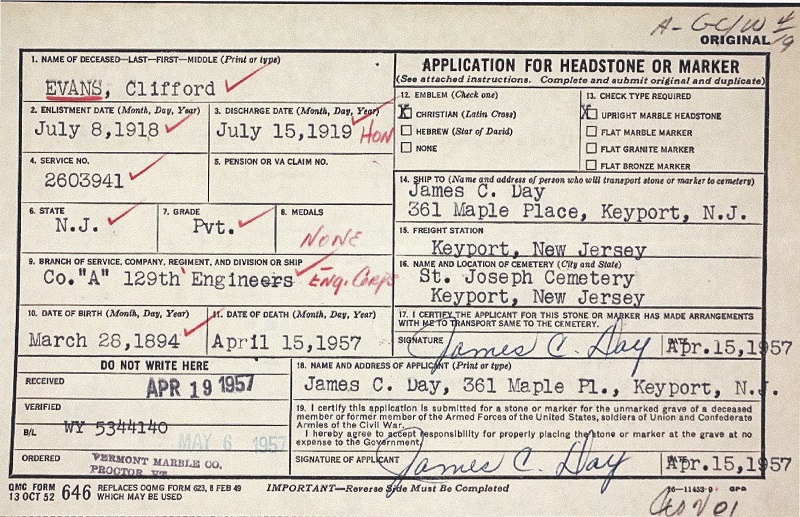 A-GC/W 4/9
ORIGINAL
1. NAME OF DECEASED—LAST—FIRST—MIDDLE (Print or type)
EVANS, Clifford
2. ENLISTMENT DATE (Month, Day, Year)
July 8,1918
3. DISCHARGE DATE (Month, Day, Year)
July 15,1919 HON
4. SERVICE NO.
2603941
5. PENSION OR VA CLAIM NO.
6. STATE
N.J.
7. GRADE
Pvt.
8. MEDALS
NONE
9. BRANCH OF SERVICE, COMPANY, REGIMENT, AND DIVISION OR SHIP
Co."A" 129th Engineers Eng. Corps
10. DATE OF BIRTH (Month, Day, Year)
March 28,1894
11. DATE OF DEATH (Month, Day, Year)
April 15,1957
DO NOT WRITE HERE
RECEIVED
APR 19 1957
VERIFIED
B/L
WY 5344140
MAY 6 1957
ORDERED
VERMONT MARBLE CO.
PROCTOR VT.
APPLICATION FOR HEADSTONE OR MARKER
(See attached instructions. Complete and submit original and duplicate)
12. EMBLEM (Check one)
X CHRISTIAN (Latin Cross)
HEBREW (Star of David)
NONE
13. CHECK TYPE REQUIRED
X UPRIGHT MARBLE HEADSTONE
FLAT MARBLE MARKER
FLAT GRANITE MARKER
FLAT BRONZE MARKER
14. SHIP TO (Name and address of person who will transport stone or marker to cemetery)
James C. Day
361 Maple Place, Keyport, N.J.
15. FREIGHT STATION
Keyport, New Jersey
16. NAME AND LOCATION OF CEMETERY (City and State)
St. Joseph Cemetery
Keyport, New Jersey
17. I CERTIFY THE APPLICANT FOR THIS STONE OR MARKER HAS MADE ARRANGEMENTS
WITH ME TO TRANSPORT SAME TO THE CEMETERY.
SIGNATURE
James C. Day
Apr.15,1957
18. NAME AND ADDRESS OF APPLICANT (Print or type)
James C. Day, 361 Maple Pl., Keyport, N.J.
19. I certify this application is submitted for a stone or marker for the unmarked grave of a deceased
member or former member of the Armed Forces of the United States, soldiers of Union and Confederate
Armies of the Civil War.
I hereby agree to accept responsibility for properly placing the stone or marker at the grave at no
expense to the Government.
SIGNATURE OF APPLICANT
James C. Day
Apr.15,1957
QMC FORM
13 OCT 52
646
REPLACES OQMG FORM 623, 8 FEB 49
WHICH MAY BE USED
IMPORTANT—Reverse Side Must Be Completed
16—11453-9 GPO